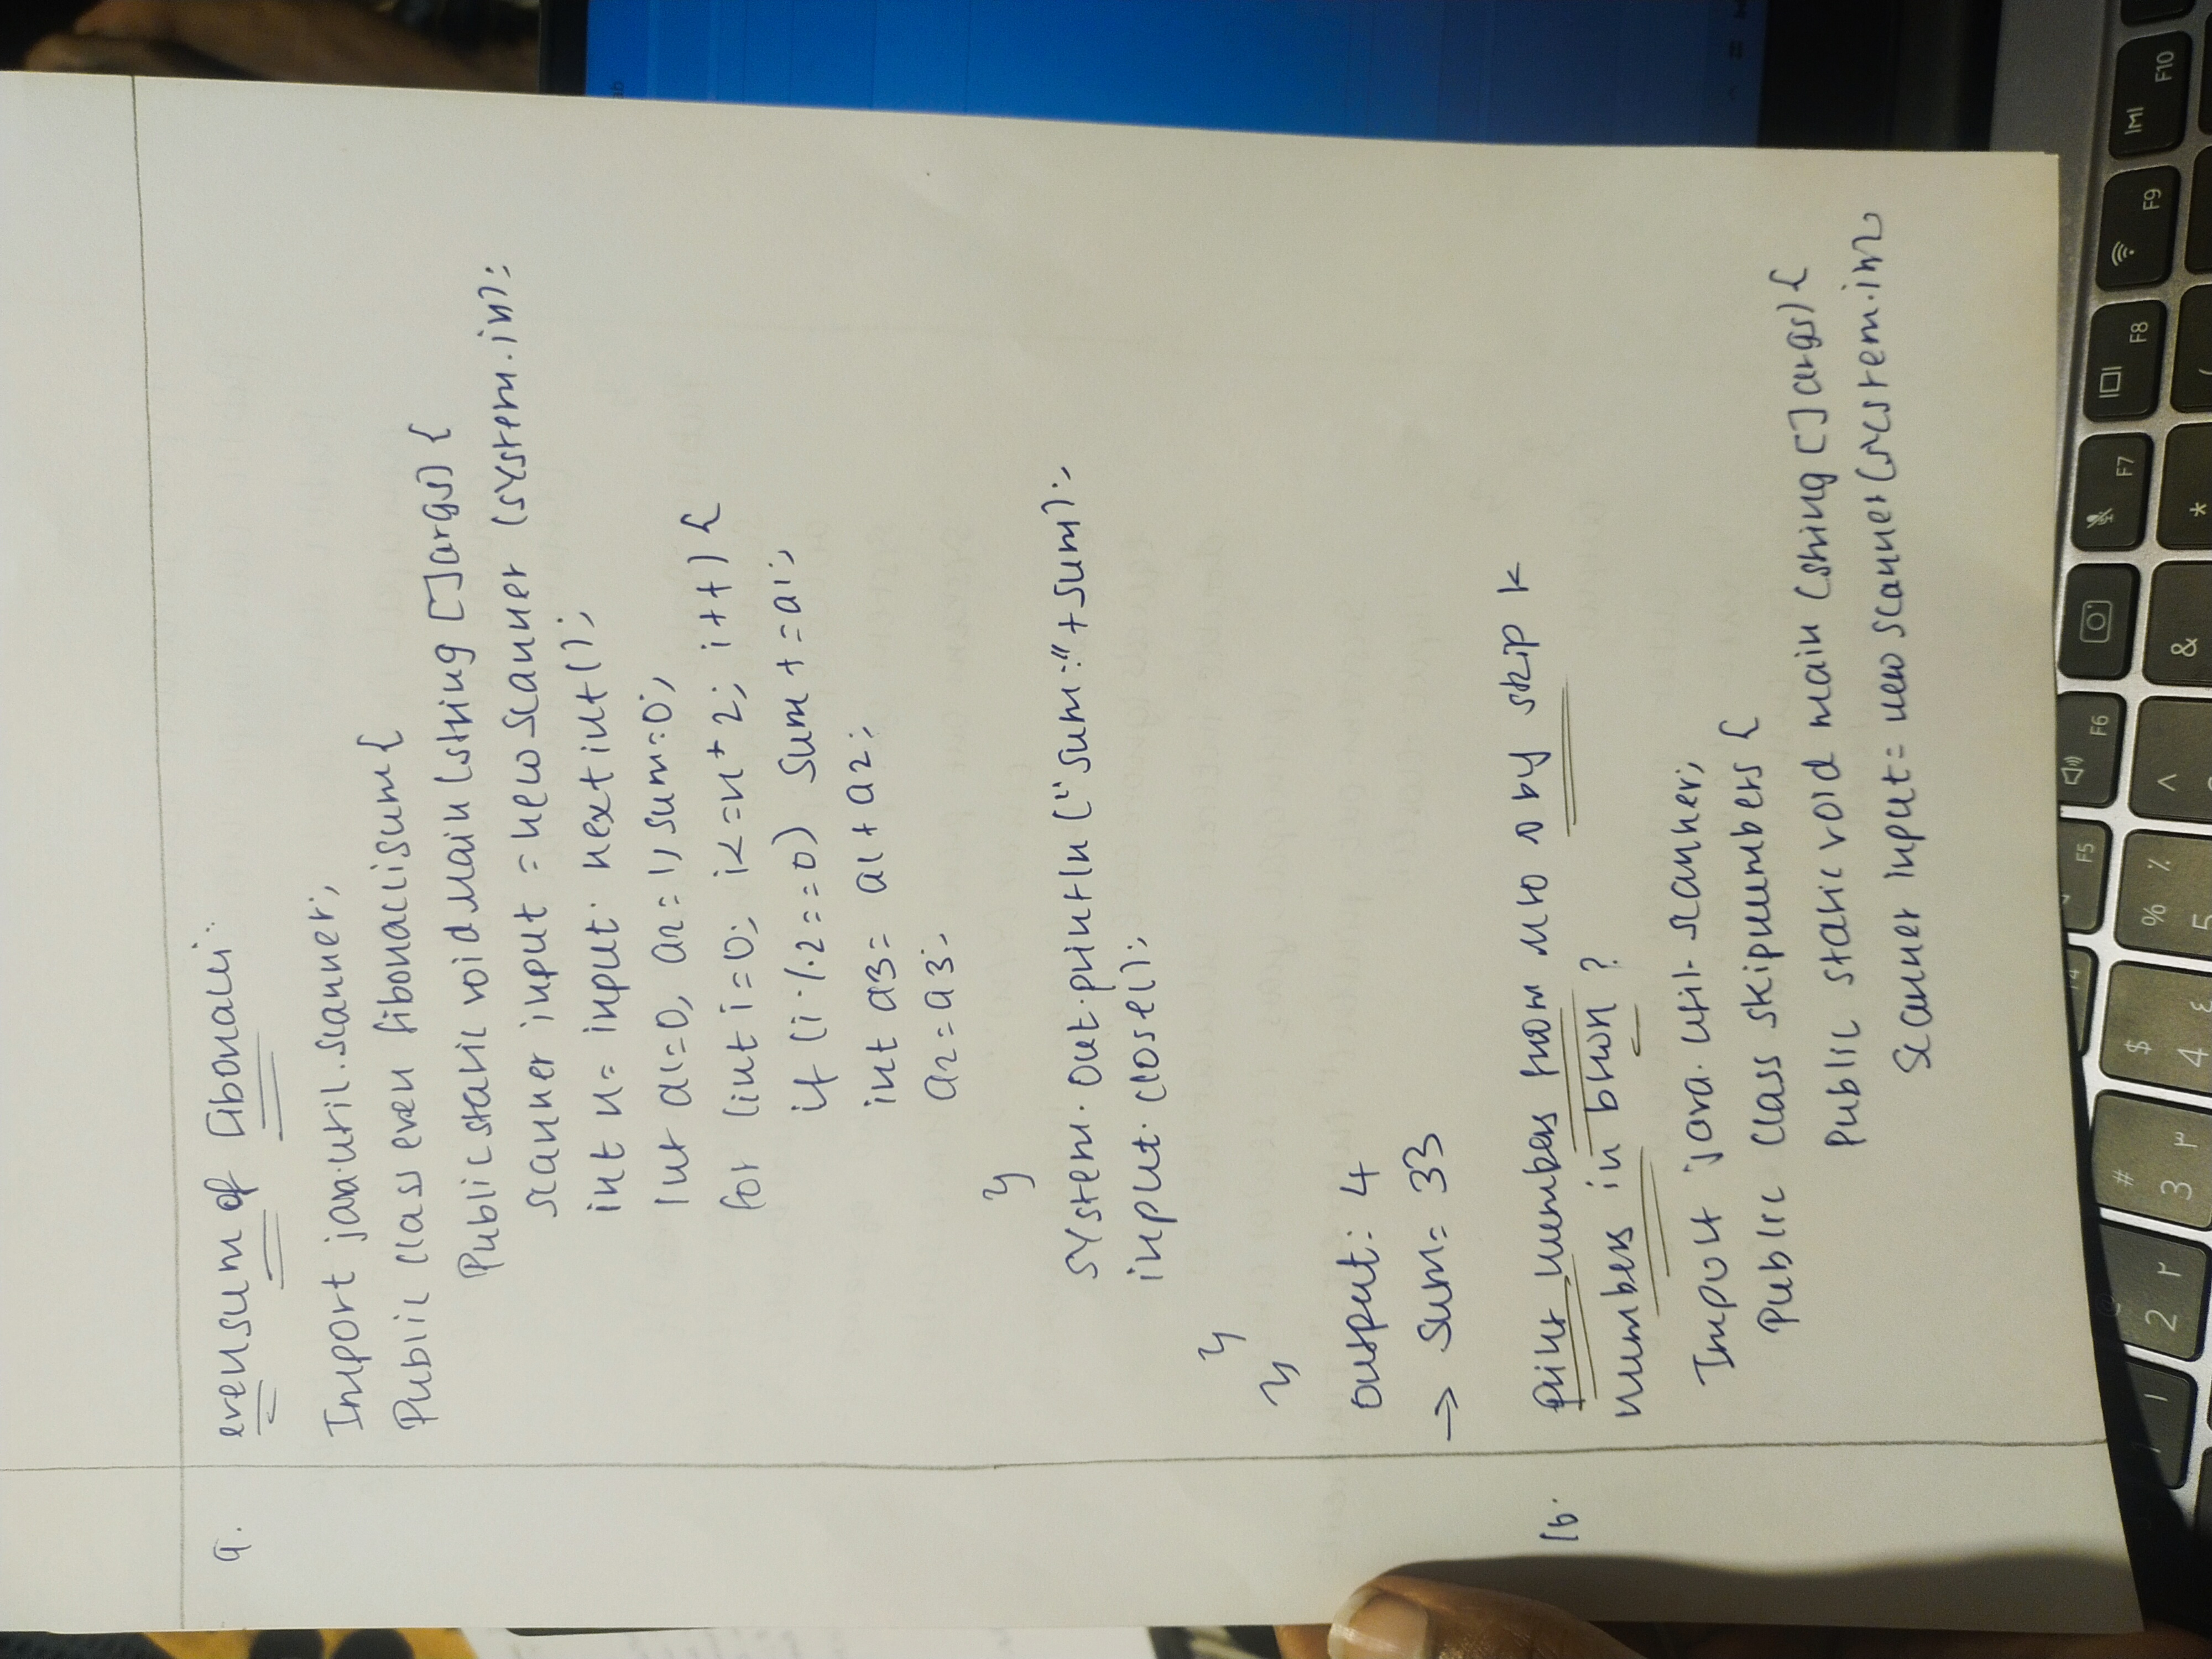 9. evensum of Fibonacci:
Import java.util.scanner;
Public class even fibonaccisum {
Public static void Main (string [] args) {
scanner input = new scanner (system.in);
int n = input. nextint();
int a1=0, a2=1, sum=0;
for (int i=0; i<=n*2; i++) {
if (i%2==0) sum+=a1;
int a3= a1+a2;
a2=a3;
}
system. out.println ("sum:"+sum);
input. close();
}
}
output: 4
→ sum= 33
10. print numbers from n to 0 by skip k
numbers in btwn?
Import java.util.scanner;
Public class skipnumbers {
Public static void main (string [] args) {
Scanner input = new scanner (system.in);
F5
F6
F7
F8
F9
F10
2 ٢
# 3 ٣
$ 4 ٤
% ٪ 5
^
&
*
(